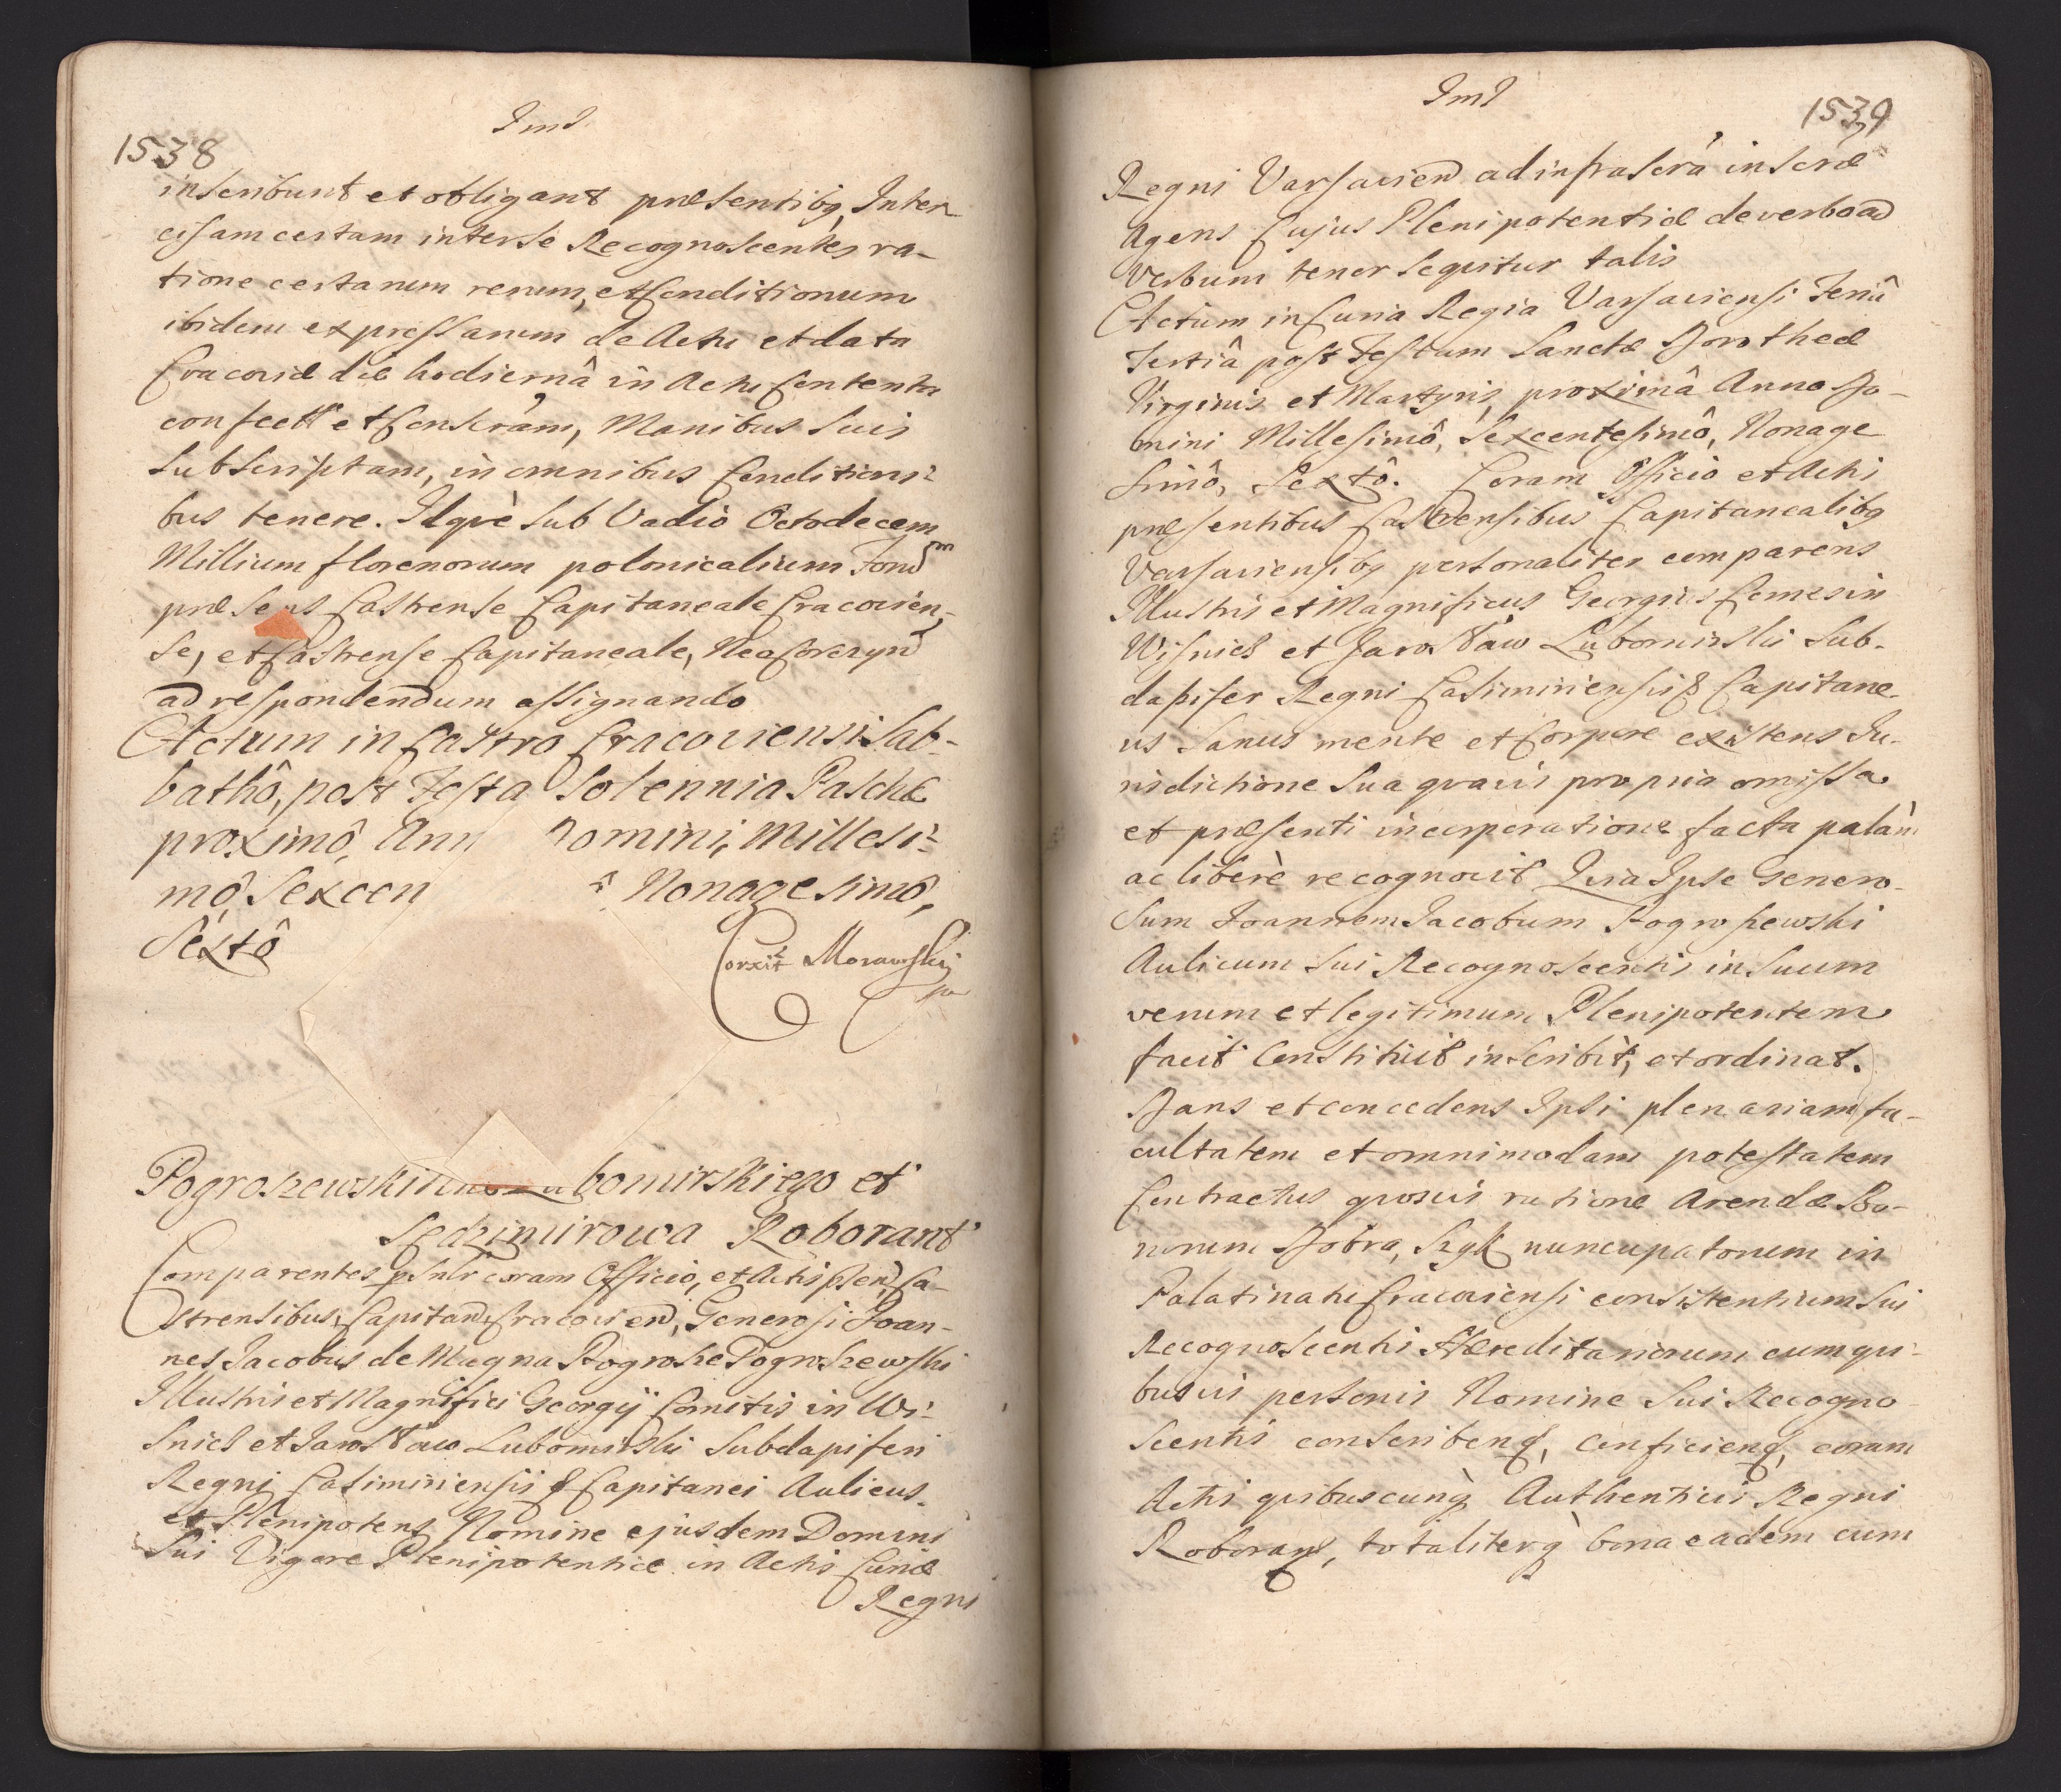 1538
inscribunt et obligant præsentibq Inter
cisam certam inter se Recognoscentes ra-
tione certarum rerum, et Conditionum
ibidem expressarum de Actu et data
Cracoviæ die hodiernâ in Actu Contentu
confect et Conscram, Manibus suis
subscriptam, in omnibus Conditioni-
bus tenere. Idqve sub Vadio Octodecem
Millium florenorum polonicalium Forū
præsens Castrense Capitaneale Cracovien-
se, et Castrense Capitaneale,
ad respondendum assignando
Actum in Castro Cracoviensi Sab-
bathô, post Festa Solennia Paschæ
proximô, Ann Domini, Millesi-
mô, Sexcen Nonagesimô,
Sextô
Corxit Morawskij
Pogroszewski Lubomirskiego et
Sędzimirowa Roborant
Comparentes psnlr coram Officio, et Actis psen, Ca-
strensibus, Capitan Cracovien, Generosi Joan-
nes Jacobus de Magna Pogrosze Pogroszewski
Illustris et Magnifici Georgij Comitis in Wi-
snicz et Jarosław Lubomirski Subdapiferi
Regni Casimiriensis & Capitanei Aulicus
et Plenipotens Nomine ejusdem Domini
sui Vigore Plenipotentiæ in Actis Curiæ
Regni
1539
Regni Varsavien ad infrascra inscræ
Agens Cujus Plenipotentiæ de verbo ad
verbum tenor seqvitur talis
Actum in Curia Regia Varsaviensi Feriâ
Tertiâ post Festum Sanctæ Dorotheæ
Virginis et Martyris, proximâ Anno Do-
mini Millesimô, Sexcentesimô, Nonage
simô, Sextô. Coram Officio et Actis
præsentibus Castrensibus Capitanealibq
Varsaviensibq personaliter comparens
Illustris et Magnificus Georgius Comes in
Wisnicz et Jarosław Lubomirski Sub-
dapifer Regni Casimiriensis & Capitane-
us Sanus mente et Corpore existens Ju-
risdictione sua qvavis propria omissa
et præsenti incorporatione facta palàm
ac liberè recognovit Qvia Ipse Genero-
sum Joannem Jacobum Pogroszewski
Aulicum sui Recognoscentis in Suum
verum et legitimum Plenipotentem
facit Constituit inscribit, et ordinat.
Dans et concedens Ipsi plenariam fa-
cultatem et omnimodam potestatem
Contractus qvosvis ratione Arendæ Bo-
norum Dobra, nuncupatorum in
Palatinatu Cracoviensi consistentium sui
Recognoscentis Hæreditariorum cum qvi-
busvis personis Nomine sui Recogno-
scentis conscribend, conficiend, coram
Actis qvibuscunq Authenticis Regni
Roborand, totaliterq bona eadem cum